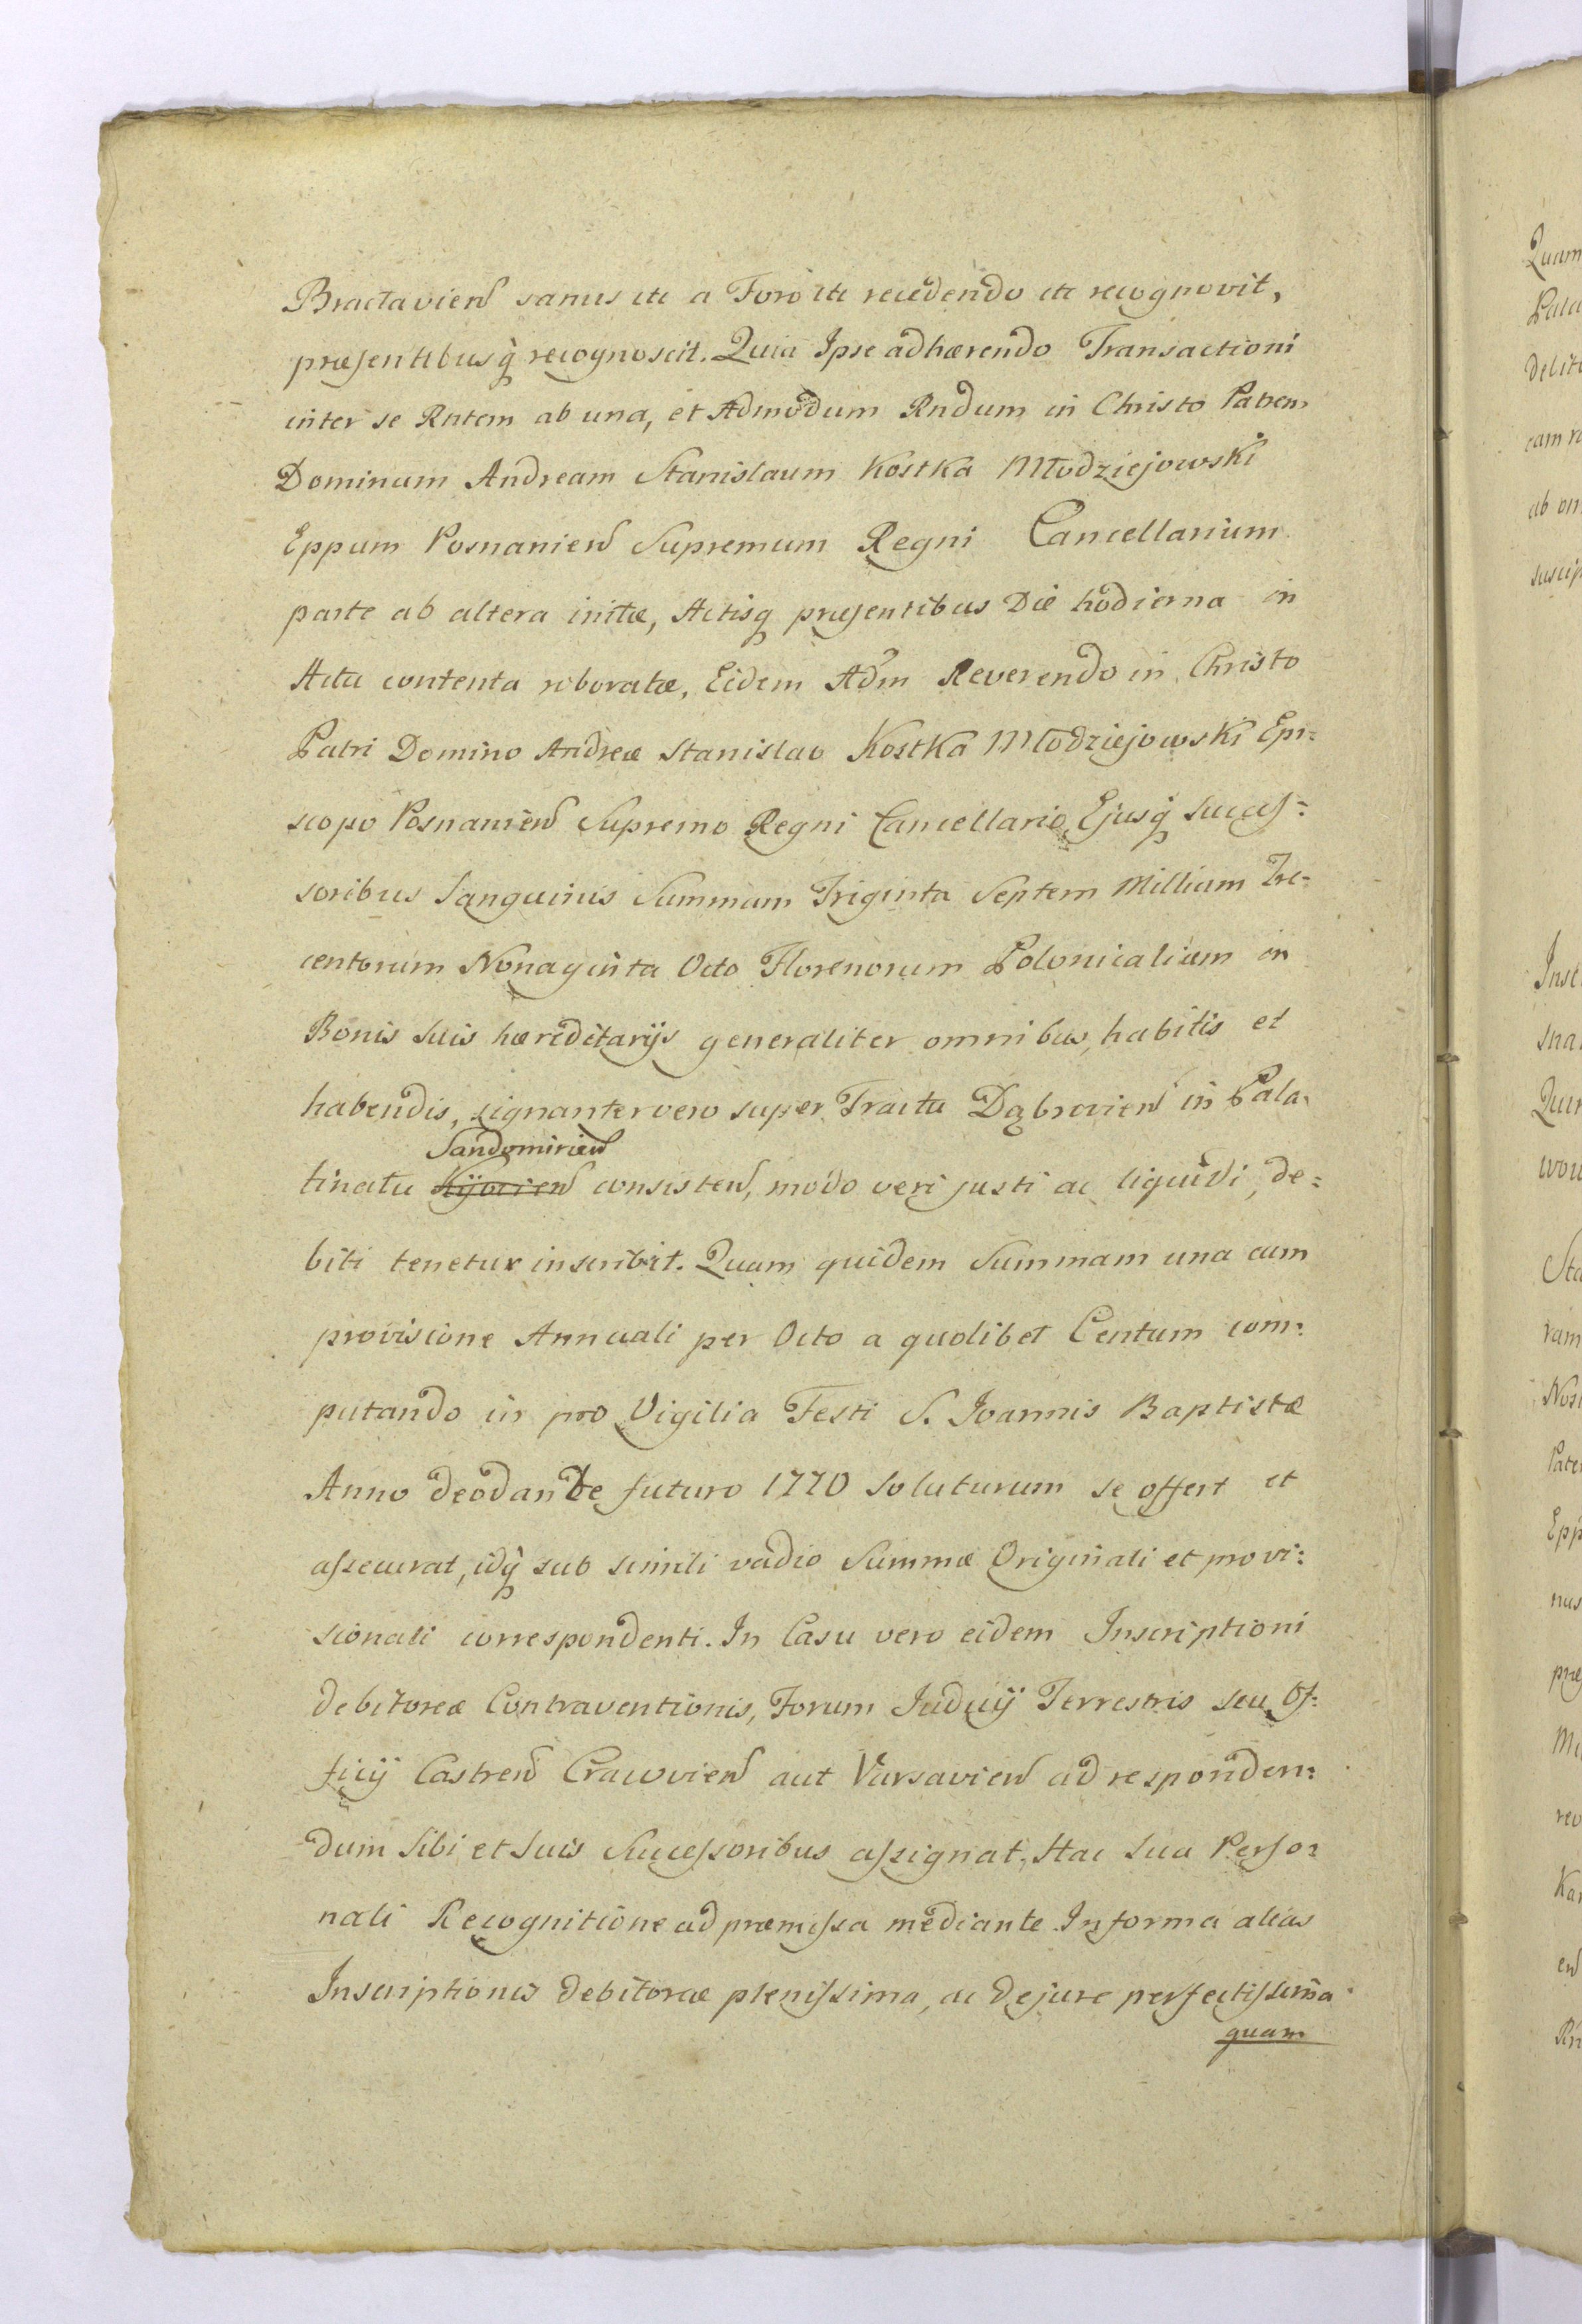 Bractavien sanus etc a Foro etc recedendo etc recognovit,
præsentibusq recognoscit. Quia Ipse adhærendo Transactioni
inter se Rntem ab una, et Admodum Rndum in Christo Patrem
Dominum Andream Stanislaum Kostka Młodziejowski
Eppum Posnanien Supremum Regni Cancellarium
parte ab altera initæ, Actisq præsentibus Die hodierna in
Actu contenta roboratæ, Eidem Adm Reverendo in Christo
Patri Domino Andreæ Stanislao Kostka Młodziejowski Epi=
scopo Posnanien Supremo Regni Cancellario, Ejusq Succes=
soribus Sanguinis Summam Triginta Septem Millium Tre=
centorum Nonaginta Octo Florenorum Polonicalium in
Bonis suis hæreditarijs generaliter omnibus, habitis et
habendis, signanter vero super Tractu Dąbrovien in Pala=
Sandomirien
tinatu Kijovien consisten, modo veri justi ac liquidi, de=
biti tenetur inscribit. Quam quidem Summam una cum
provisione Annuali per Octo a quolibet Centum com=
putando in pro Vigilia Festi S. Joannis Baptistæ
Anno deodante futuro 1770 soluturum se offert et
assecurat, idq sub simili vadio Summæ Originali et provi=
sionali correspondenti. In Casu vero eidem Inscriptioni
debitoreæ Contraventionis, Forum Judicij Terrestris seu Of=
ficij Castren Cracovien aut Varsavien ad responden=
dum Sibi et Suis Successoribus assignat, Hac Sua Perso=
nali Recognitione ad præmissa mediante In forma alias
Inscriptionis debitoreæ plenissima, ac de jure perfectissima
quam
Quam
Pala
debit
cam r
ab om
suscip
Inst
Sta
ram
Pate
Epp
nus
præ
rev
Kan
en